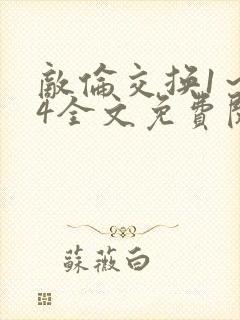 敵倫交換1~
4全文免費閱
蘇薇白